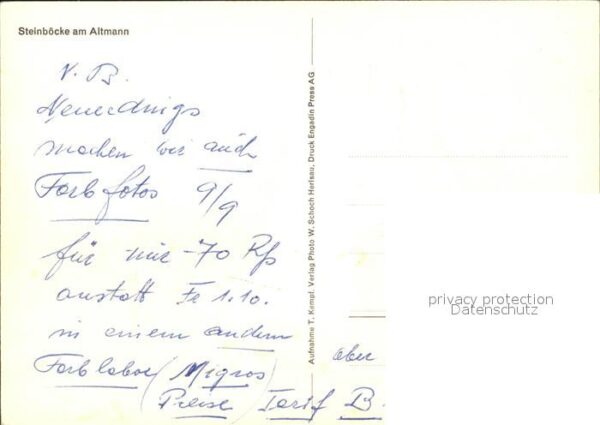 Steinböcke am Altmann
N. B.
Neuerdings
machen wir auch
Farbfotos 9/9
für nur -70 Rp
anstatt Fr 1.10.
in einem andern
Farblabor (Migros)
Preise Tarif B.
aber
Aufnahme T. Kempf. Verlag Photo W. Schoch Herisau, Druck Engadin Press AG
privacy protection
Datenschutz